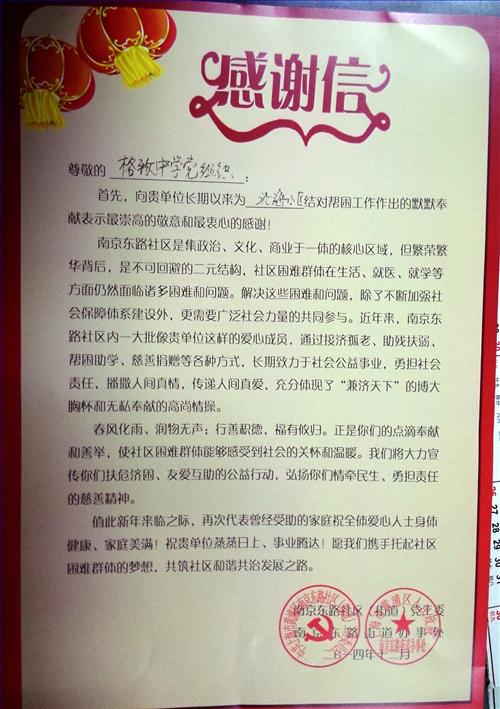 感谢信
尊敬的 格致中学党组织：
首先，向贵单位长期以来为 北海小区结对帮困工作作出的默默奉
献表示最崇高的敬意和最衷心的感谢！
南京东路社区是集政治、文化、商业于一体的核心区域，但繁荣繁
华背后，是不可回避的二元结构，社区困难群体在生活、就医、就学等
方面仍然面临诸多困难和问题。解决这些困难和问题，除了不断加强社
会保障体系建设外，更需要广泛社会力量的共同参与。近年来，南京东
路社区内一大批像贵单位这样的爱心成员，通过接济孤老、助残扶弱、
帮困助学、慈善捐赠等各种方式，长期致力于社会公益事业，勇担社会
责任，播撒人间真情，传递人间真爱，充分体现了“兼济天下”的博大
胸怀和无私奉献的高尚情操。
春风化雨、润物无声；行善积德，福有攸归。正是你们的点滴奉献
和善举，使社区困难群体能够感受到社会的关怀和温暖。我们将大力宣
传你们扶危济困、友爱互助的公益行动，弘扬你们情牵民生、勇担责任
的慈善精神。
值此新年来临之际，再次代表曾经受助的家庭祝全体爱心人士身体
健康、家庭美满！祝贵单位蒸蒸日上、事业腾达！愿我们携手托起社区
困难群体的梦想，共筑社区和谐共治发展之路。
南京东路社区（街道）党工委
南京东路街道办事处
二〇一四年十二月
26
27
28
29
30
31